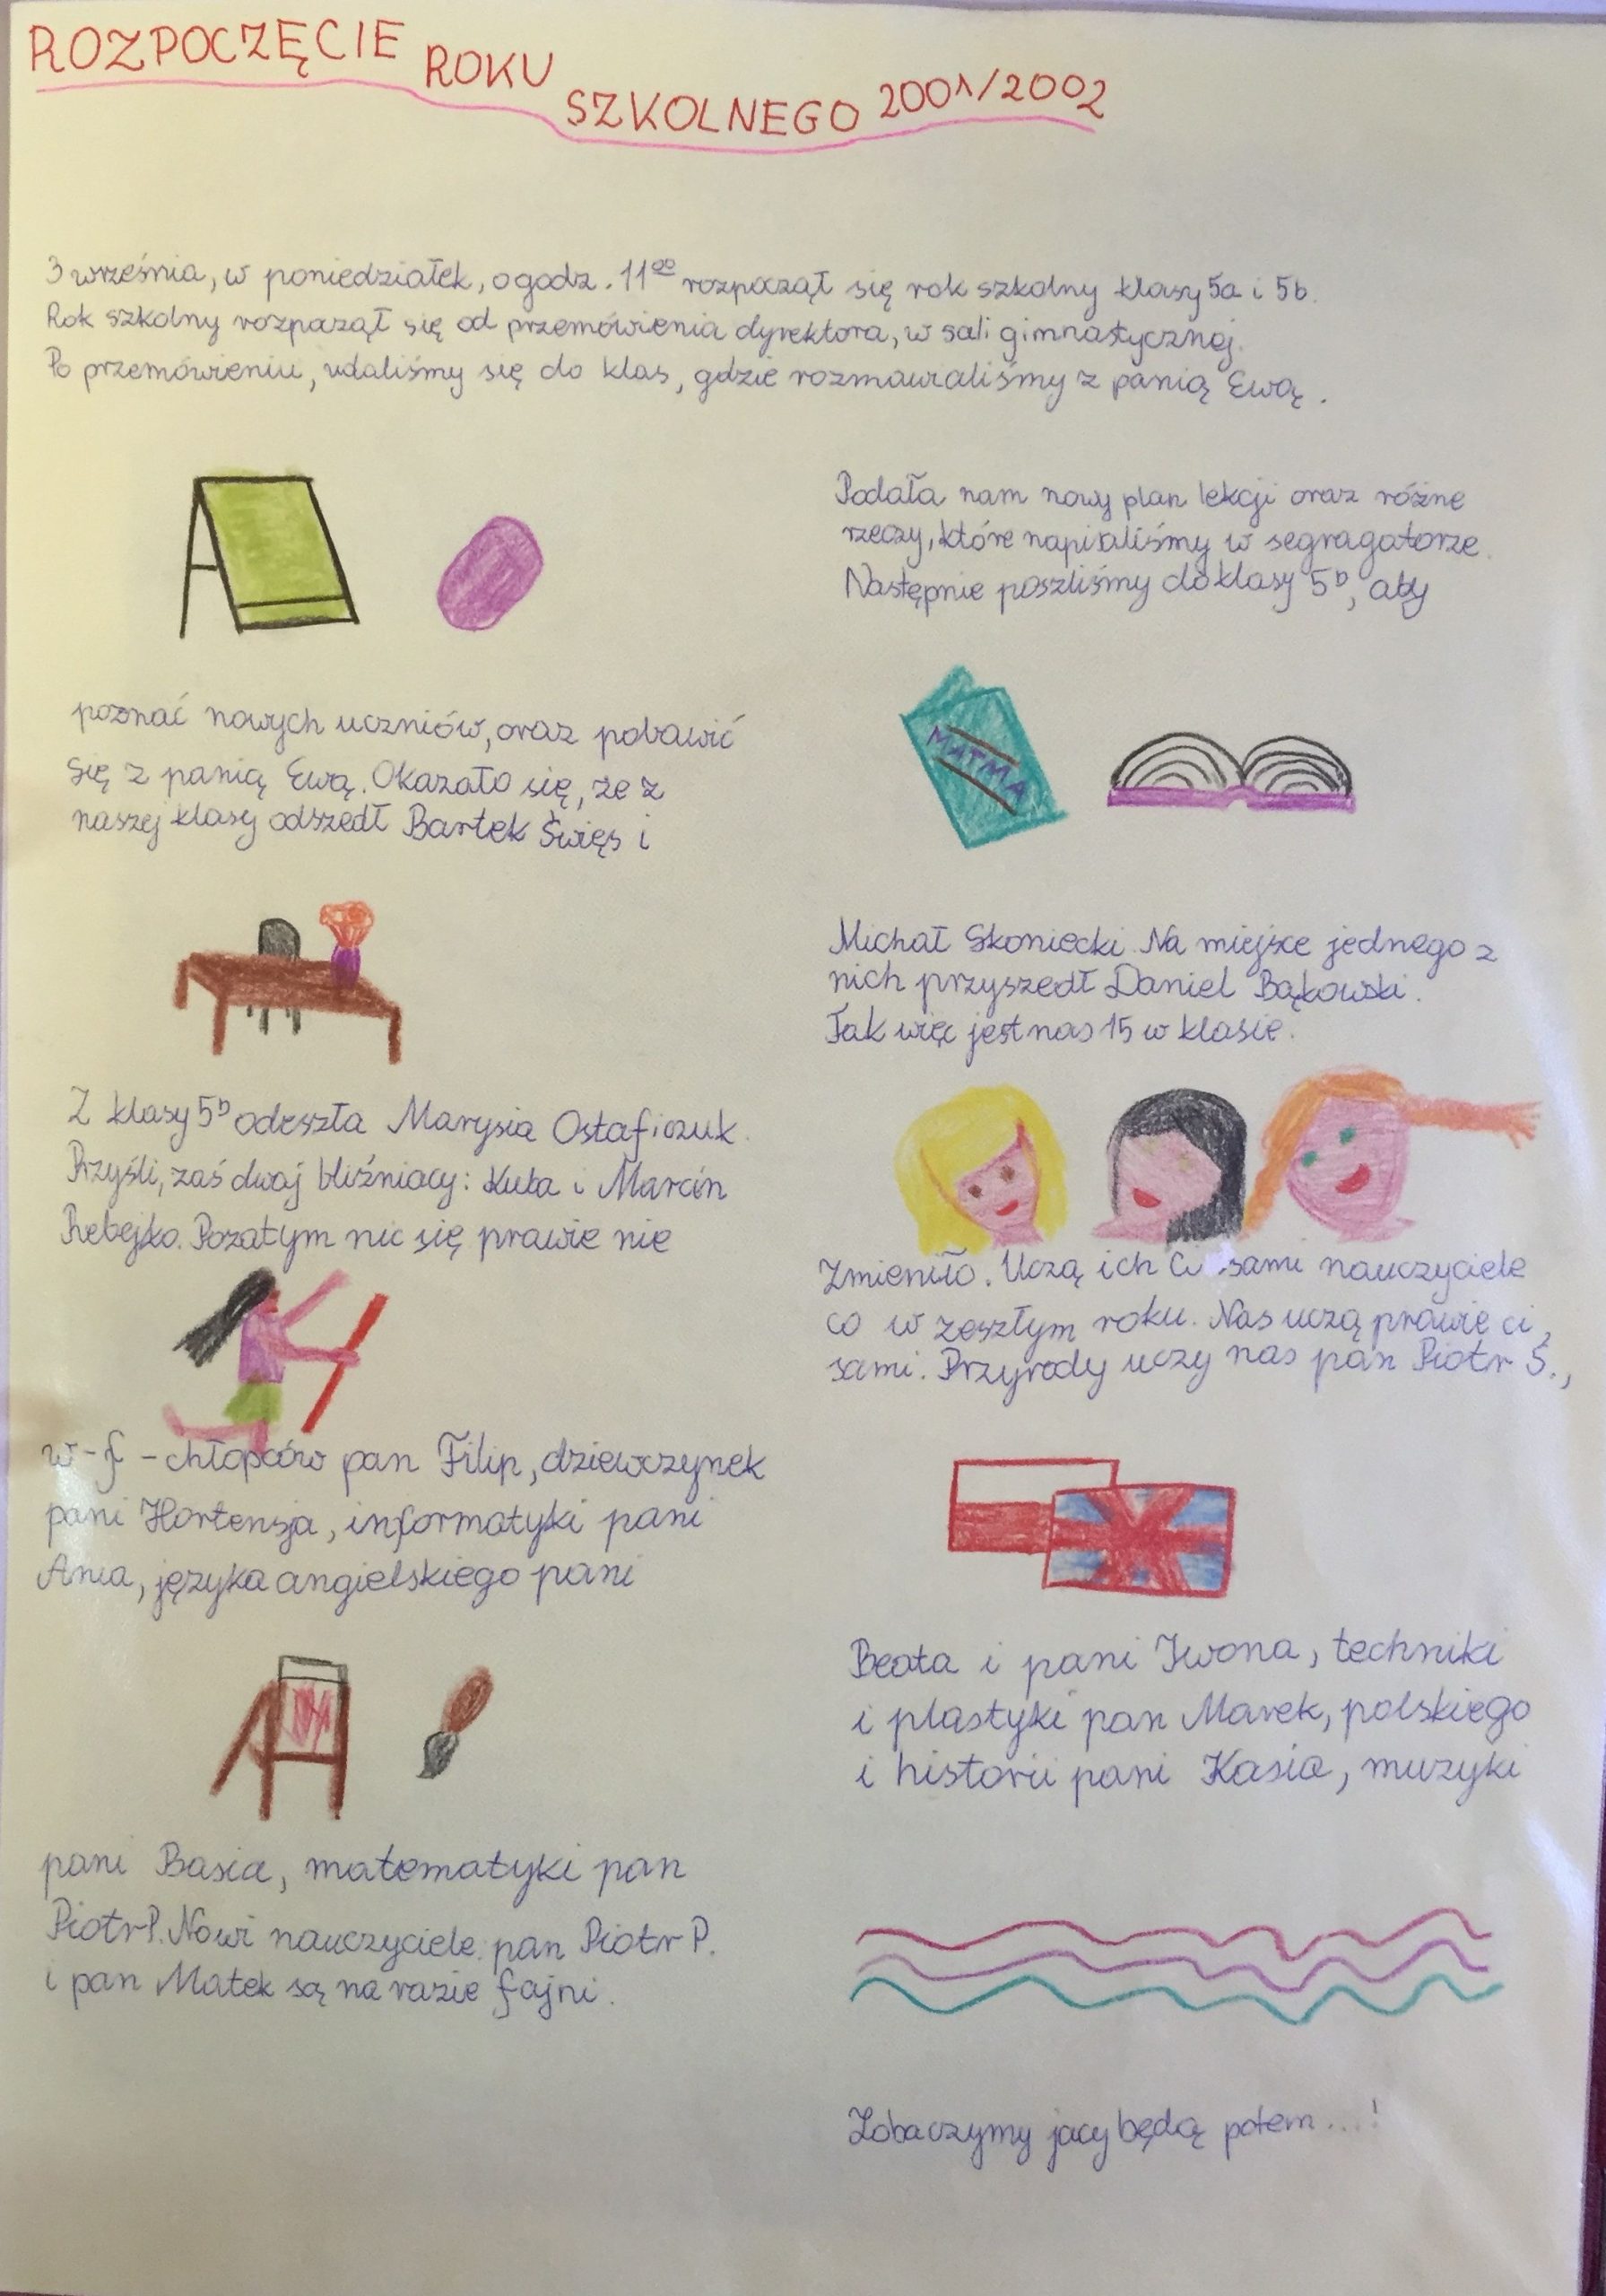 ROZPOCZĘCIE ROKU SZKOLNEGO 2001/2002
3 września, w poniedziałek, o godz. 11⁰⁰ rozpoczął się rok szkolny klasy 5a i 5b.
Rok szkolny rozpaząt się od przemówienia dyrektora, w sali gimnastycznej.
Po przemówieniu, udaliśmy się do klas, gdzie rozmawialiśmy z panią Ewą.
Podała nam nowy plan lekcji oraz różne
rzeczy, które napisaliśmy w segragatorze.
Następnie poszliśmy do klasy 5b, aby
poznać nowych uczniów, oraz pobawić
się z panią Ewą. Okazało się, że z
naszej klasy odszedł Bartek Święs i
MATMA
Michał Skoniecki. Na miejsce jednego z
nich przyszedł Daniel Bąkowski.
Tak więc jest nas 15 w klasie.
Z klasy 5b odeszła Marysia Ostaficzuk.
Przyśli, zaś dwaj bliźniacy: Kuba i Marcin
Rebejko. Pozatym nic się prawie nie
zmieniło. Uczą ich Ci sami nauczyciele
co w zeszłym roku. Nas uczą prawie ci
sami. Przyrody uczy nas pan Piotr Ś.,
w-f - chłopców pan Filip, dziewczynek
pani Hortensja, informatyki pani
Ania, języka angielskiego pani
Beata i pani Iwona, techniki
i plastyki pan Marek, polskiego
i historii pani Kasia, muzyki
pani Basia, matematyki pan
Piotr P. Nowi nauczyciele: pan Piotr P.
i pan Matek są na razie fajni.
Zobaczymy jacy będą potem...!